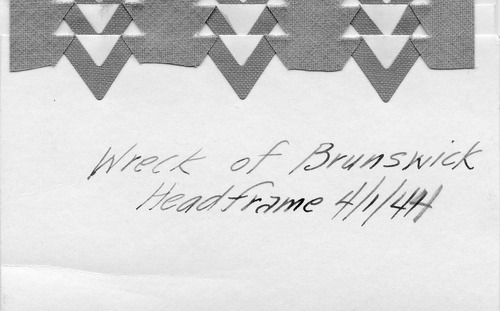 Wreck of Brunswick
Headframe 4/1/44